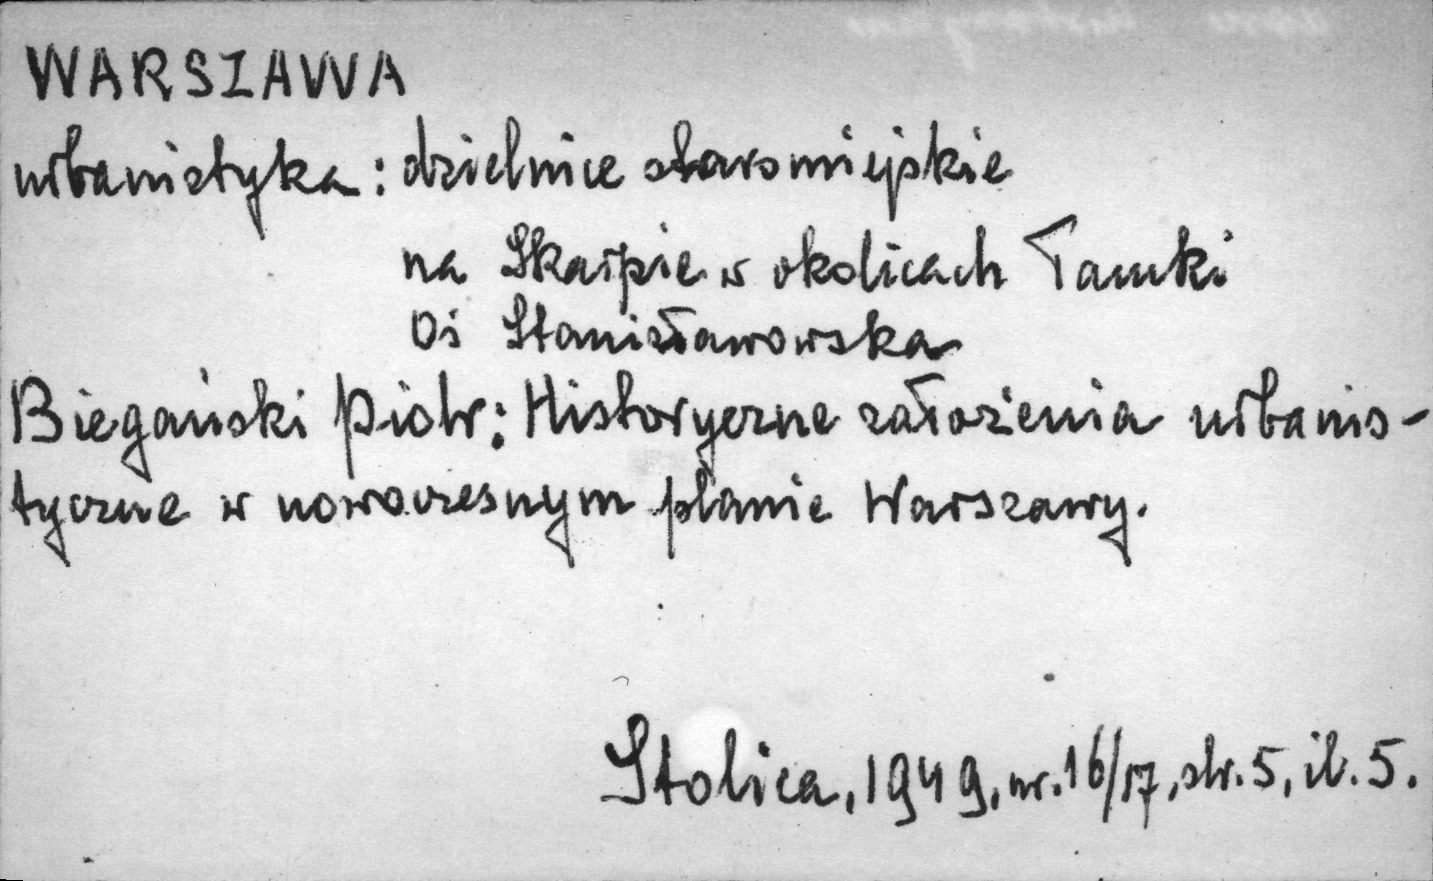 WARSZAWA
urbanistyka: dzielnice staromiejskie
na Skarpie w okolicach Tamki
Oś Stanisławowska
Biegański Piotr: Historyczne założenia urbanis-
tyczne w nowoczesnym planie Warszawy.
Stolica, 1949, nr. 16/17, str. 5, il. 5.